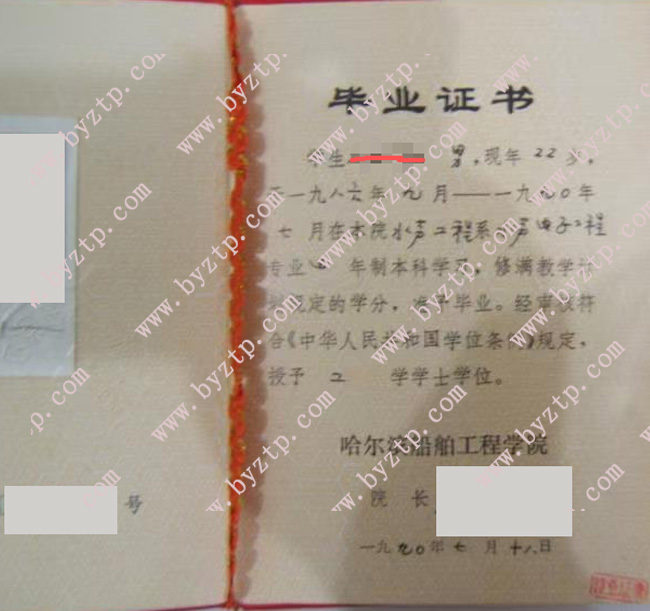 号
毕业证书
学生 男，现年22岁，
于一九八六年九月——一九九〇年
七月在本院水声工程系水声电子工程
专业四年制本科学习，修满教学计
划规定的学分，准予毕业。经审核符
合《中华人民共和国学位条例》规定，
授予 工 学学士学位。
哈尔滨船舶工程学院
院 长
一九九〇年七月十八日
www.byztp.com